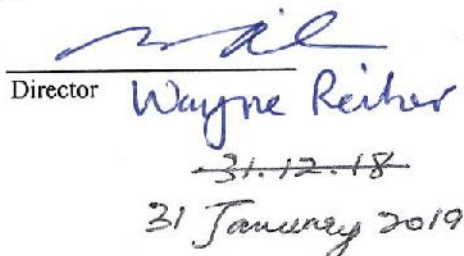 Director Wayne Reiher
31.12.18
31 January 2019